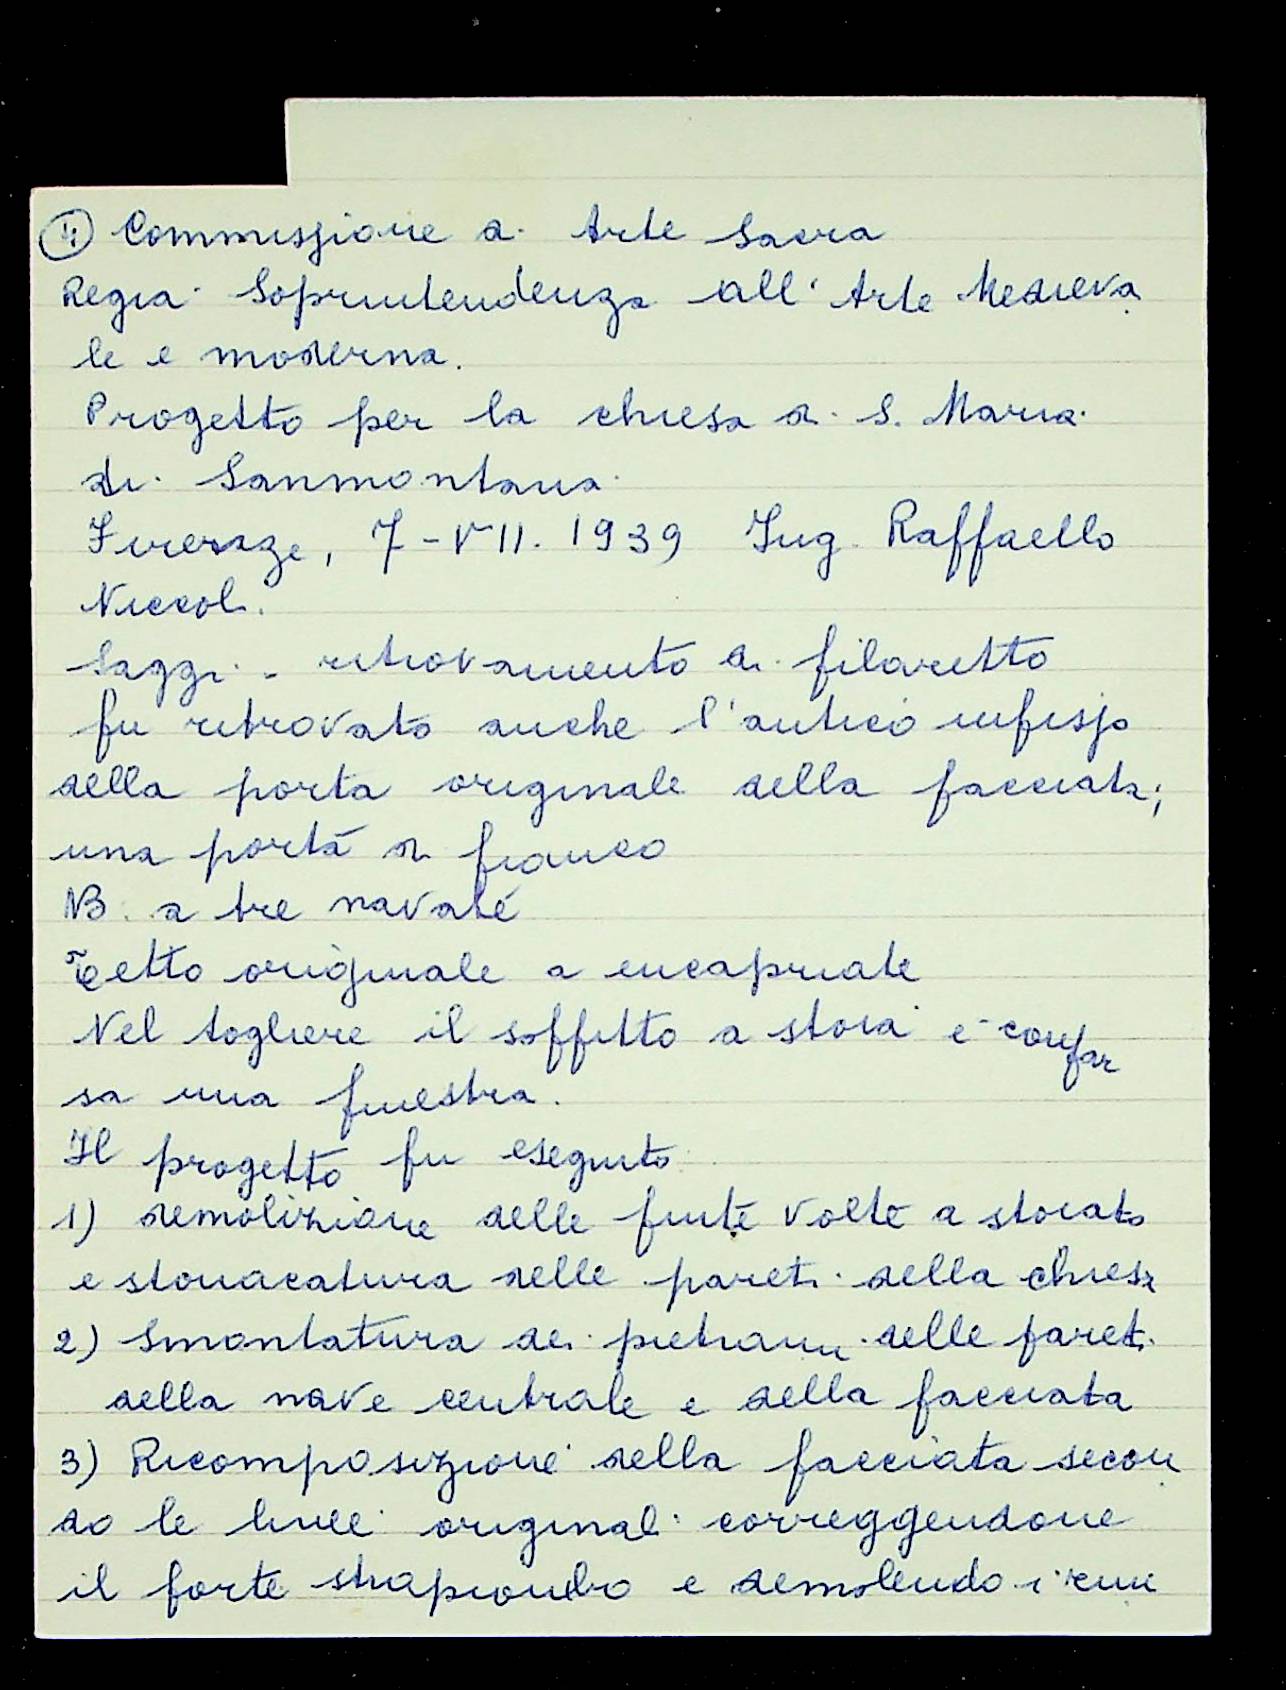 4) Commissione di Arte Sacra
Regia Soprintendenza all'Arte Medieva
le e moderna.
Progetto per la chiesa di S. Maria
di Sanmontana
Firenze, 7-VII. 1939 Ing. Raffaello
Niccoli.
Saggi - ritrovamento di filaretto
fu ritrovato anche l'antico infisso
della porta originale della facciata;
una porta di fianco
NB. a tre navate
Tetto originale a incapriate
Nel togliere il soffitto a stoia è compar
sa una finestra.
Il progetto fu eseguito
1) demolizione delle finte volte a stoiato
e stonacatura delle pareti della chiesa
2) Smontatura dei pietrami delle pareti
della nave centrale e della facciata
3) Ricomposizione della facciata secon
do le linee originali correggendone
il forte strapiombo e demolendo i